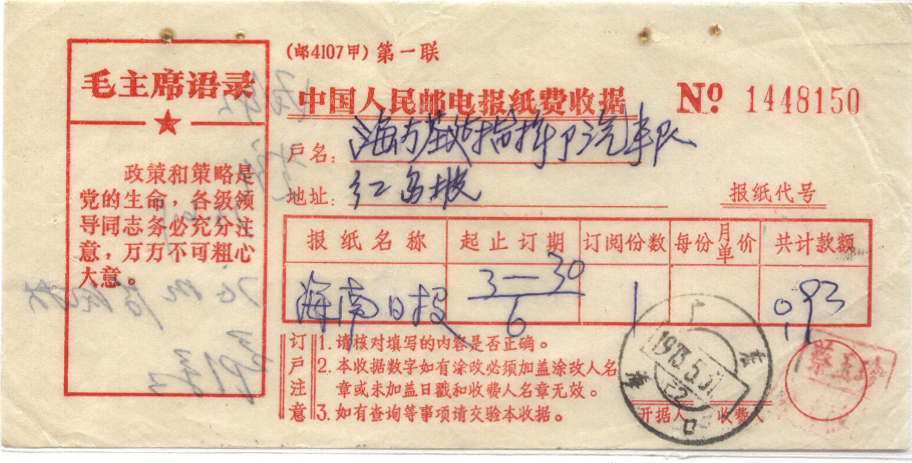 毛主席语录
政策和策略是
党的生命，各级领
导同志务必充分注
意，万万不可粗心
大意。
(邮4107甲) 第一联
中国人民邮电报纸费收据 Nº 1448150
户名：
汽车队
地址：红岛坡
报纸代号
报纸名称 起止订期 订阅份数 每份月单价 共计款额
海南日报 3—30/6 1 0.93
订户注意
1. 请核对填写的内容是否正确。
2. 本收据数字如有涂改必须加盖涂改人名
章或未加盖日戳和收费人名章无效。
3. 如有查询等事项请交验本收据。
开据人 收费人
广东
1973.5.
海口